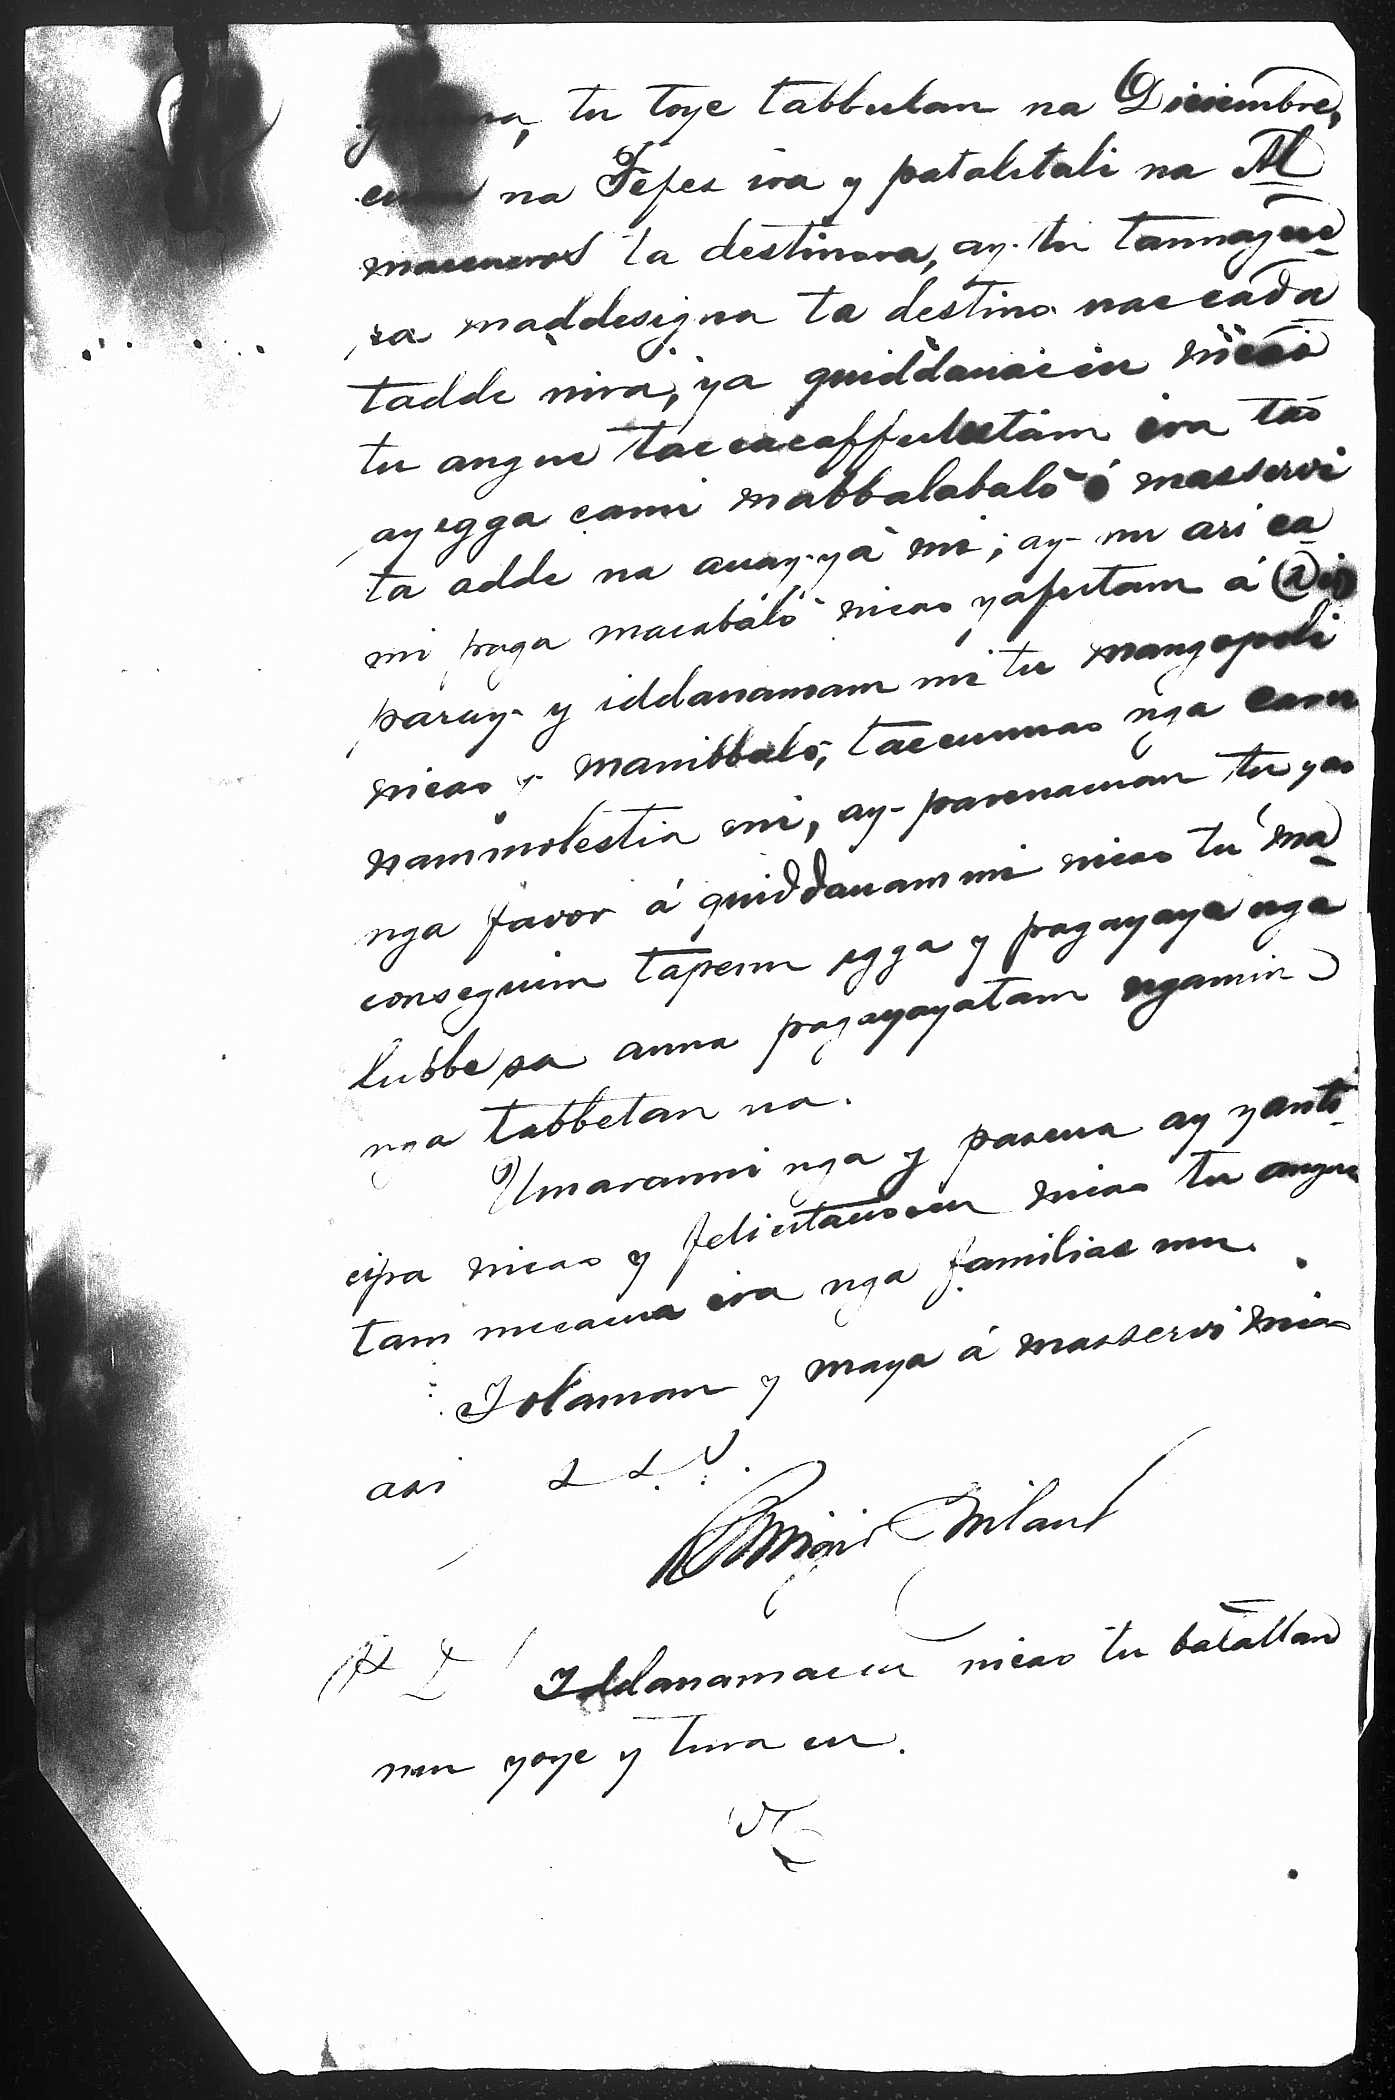 tu toye tabbulan na Diciembre,
na Jefes ira y patalitali na Al
maceneros ta destinora, ay tu tannague
ra maddesigna ta destino nac cada
tadde nira, ya quiddauaccu nicao
tu angue taccacaffulutam ira tao
ay egga cami mabbalabalo ó masservi
ta adde na auay-yá mi; ay nu ari ca
mi paga macabáló nicao yafutam á Dio
paruy y iddanamam mi tu mangopoli
nicao y manibbaló, taccunnao nga cam
nammolestia mi, ay parenacuan tu yao
nga favor á quiddauammi nicao tu ma
conseguim tapenu egga y pagayaya nga
lubbe sa anna pagayayatam ngamin
nga tabbetan na.
Umaranni nga y pascua ay yanti
cipa nicao y felicitacioccu nicao tu angue
tam mecacua ira nga familiae mu.
Iolaman y maya á masservi nicao
asi S. S. V.
Remigio Milan
P D Iddanamaccu nicao tu batallan
mu yoye y tura cu.